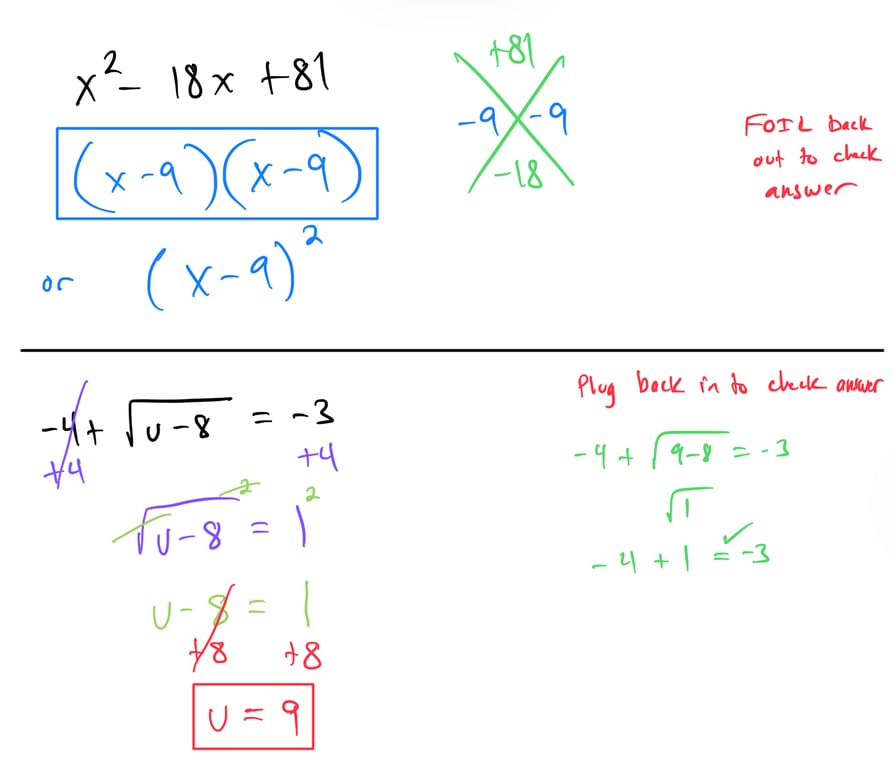 x² - 18x + 81
(x - 9)(x - 9)
or (x - 9)²
+81
-9 -9
-18
FOIL back
out to check
answer
-4 + √(u - 8) = -3
+4 +4
√(u - 8)² = 1²
u - 8 = 1
+8 +8
u = 9
Plug back in to check answer
-4 + √(9 - 8) = -3
√1
-4 + 1 = -3 ✓